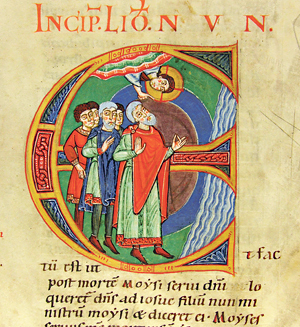 INCIP̄. LIƀO. N V N.
E t fac
tū est ut
post mortē Moysi serui dñi lo
queret̄ dñs ad iosue filiū nun mi
nistrū moysi & diceret ei. Moyses